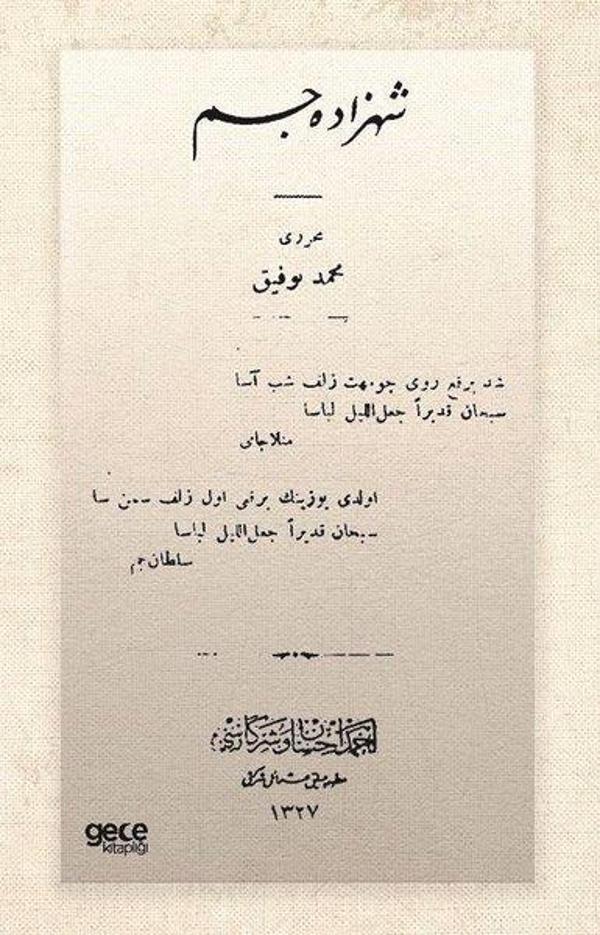 شهزاده جم
محرری
محمد توفیق
شد برقع روی چو مهت زلف شب آسا
سبحان قدیراً جعل اللیل لباسا
منلا جامی
اولدی یوزینك برقعی اول زلف سمن سا
سبحان قدیراً جعل اللیل لباسا
سلطان جم
احمد احسان و شركاسی
مطبعه‌جیلق عثمانلی شركتی
١٣٢٧
gece
kitaplığı